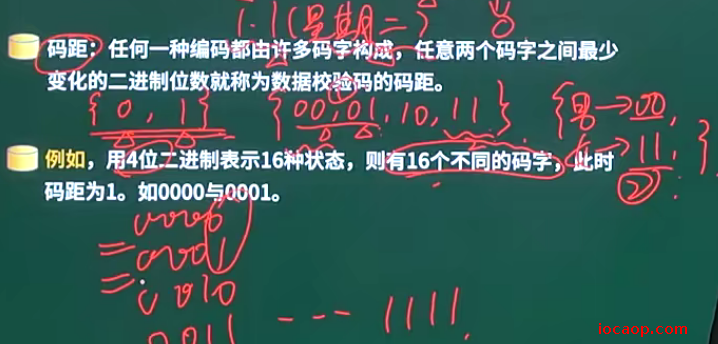 1.1(星期二)
码距：任何一种编码都由许多码字构成，任意两个码字之间最少
变化的二进制位数就称为数据校验码的码距。
{0,1} {00,01,10,11} {男→00,
→11,}
①
②
例如，用4位二进制表示16种状态，则有16个不同的码字，此时
码距为1。如0000与0001。
0000
=0001
=0010
0011 --- 1111
locaop.com